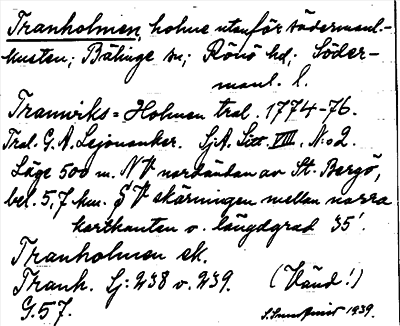 Tranholmen, holme utanför södermanl.-
kusten; Bälinge sn; Rönö hd; Söder-
manl. l.
Tranwiks=Holmen tral. 1774-76.
Tral. G. A. Lejonanker. SjA. Litt. VIII, N:o 2.
Läge 500 m. NV nordändan av St. Bergö,
bel. 5,7 km. SV skärningen mellan norra
kartkanten o. längdgrad 35'.
Tranholmen ek.
Tranh. Sj: 238 o. 239. (Vänd!)
G. 57. 1939.